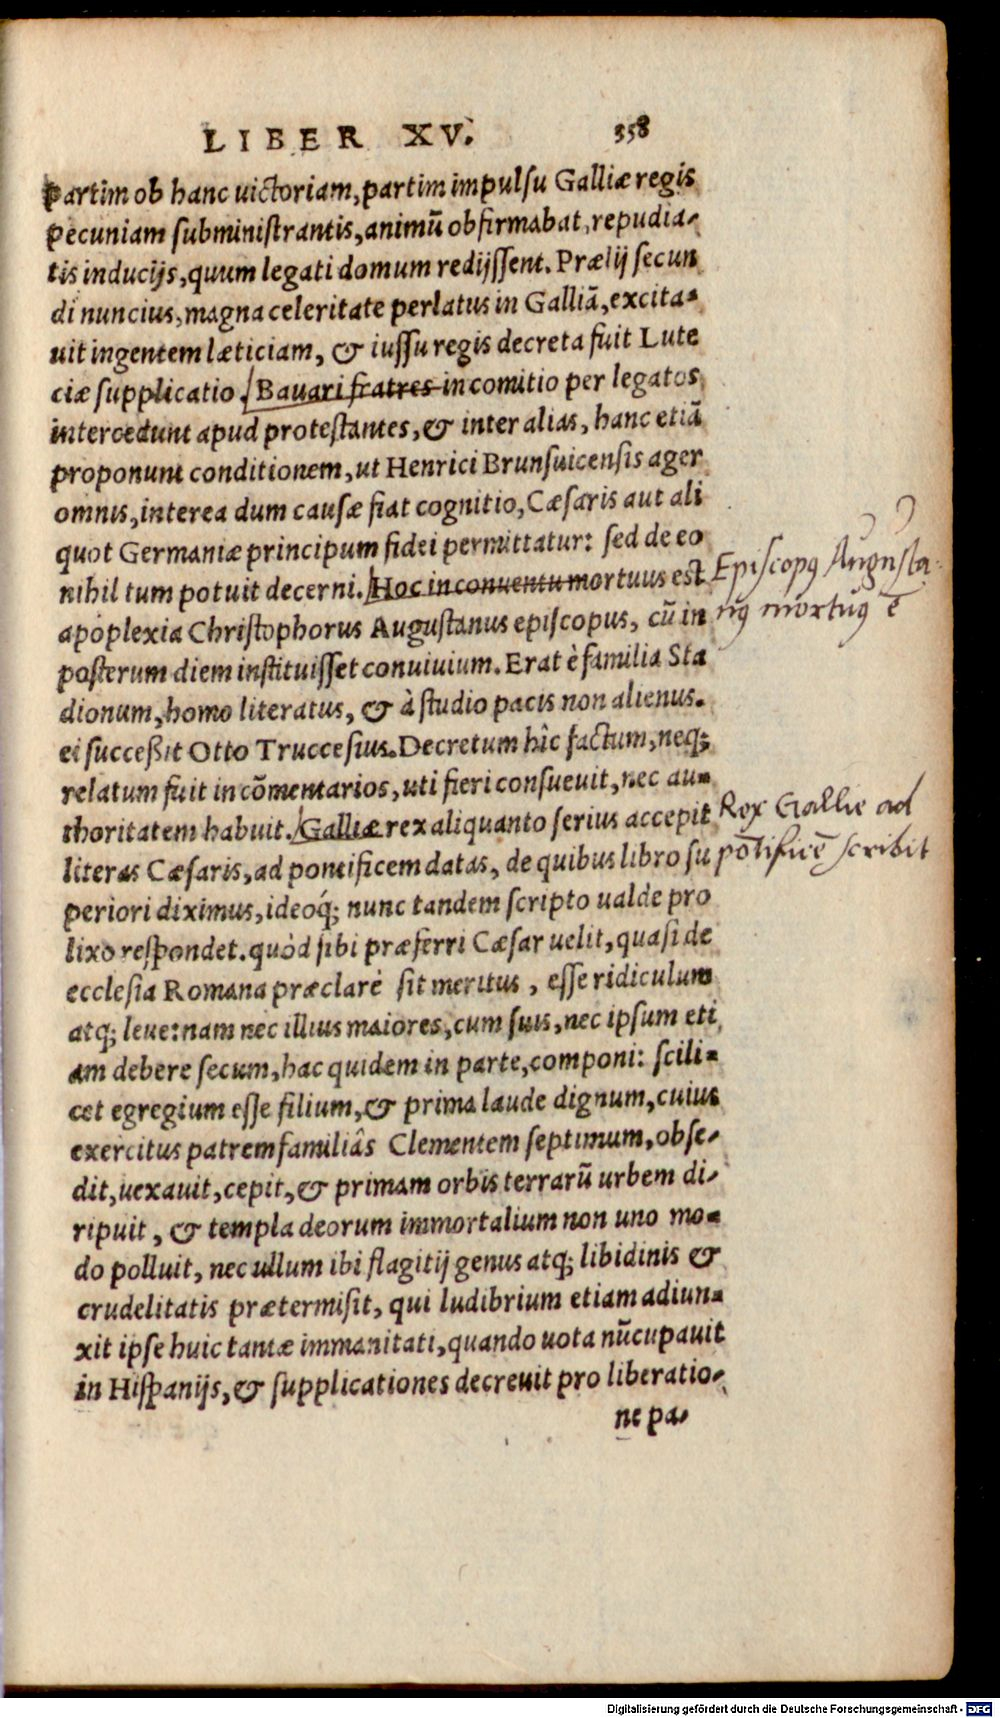 LIBER XV. 358
partim ob hanc uictoriam, partim impulsu Galliæ regis
pecuniam subministrantis, animũ obfirmabat, repudia-
tis inducijs, quum legati domum redijssent. Prælij secun
di nuncius, magna celeritate perlatus in Galliã, excita-
uit ingentem læticiam, & iussu regis decreta fuit Lute
ciæ supplicatio. Bauari fratres in comitio per legatos
intercedunt apud protestantes, & inter alias, hanc etiã
proponunt conditionem, ut Henrici Brunsuicensis ager
omnis, interea dum causæ fiat cognitio, Cæsaris aut ali
quot Germaniæ principum fidei permittatur: sed de eo
nihil tum potuit decerni. Hoc in conuentu mortuus est
apoplexia Christophorus Augustanus episcopus, cũ in
posterum diem instituisset conuiuium. Erat è familia Sta
dionum, homo literatus, & à studio pacis non alienus.
ei successit Otto Truccesius. Decretum hîc factum, neq;
relatum fuit in cõmentarios, uti fieri consueuit, nec au-
thoritatem habuit. Galliæ rex aliquanto serius accepit
literas Cæsaris, ad pontificem datas, de quibus libro su
periori diximus, ideoq́; nunc tandem scripto ualde pro
lixo respondet. quòd sibi præferri Cæsar uelit, quasi de
ecclesia Romana præclarè sit meritus, esse ridiculum
atq; leue: nam nec illius maiores, cum suis, nec ipsum eti
am debere secum, hac quidem in parte, componi: scili-
cet egregium esse filium, & prima laude dignum, cuius
exercitus patremfamiliâs Clementem septimum, obse-
dit, uexauit, cepit, & primam orbis terrarũ urbem di-
ripuit, & templa deorum immortalium non uno mo-
do polluit, nec ullum ibi flagitij genus atq; libidinis &
crudelitatis prætermisit, qui ludibrium etiam adiun-
xit ipse huic tantæ immanitati, quando uota nũcupauit
in Hispanijs, & supplicationes decreuit pro liberatio-
ne pa-
Episcopꝰ Augusta
nꝰ mortuꝰ ẽ
Rex Gallie ad
põtificẽ scribit
Digitalisierung gefördert durch die Deutsche Forschungsgemeinschaft - DFG